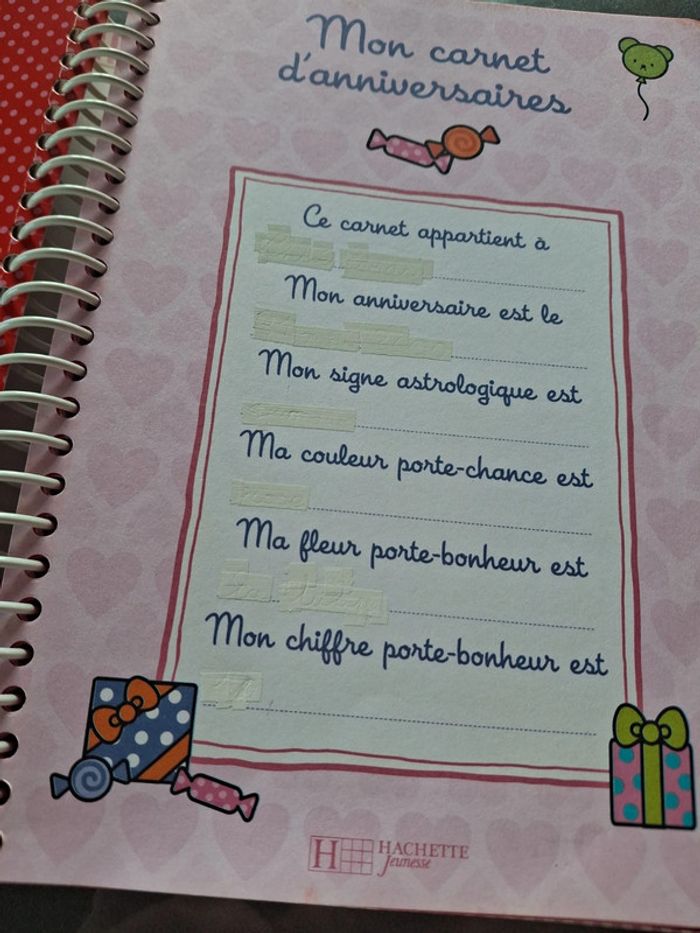 Mon carnet
d'anniversaires
Ce carnet appartient à
Mon anniversaire est le
Mon signe astrologique est
Ma couleur porte-chance est
Ma fleur porte-bonheur est
Mon chiffre porte-bonheur est
H HACHETTE
Jeunesse